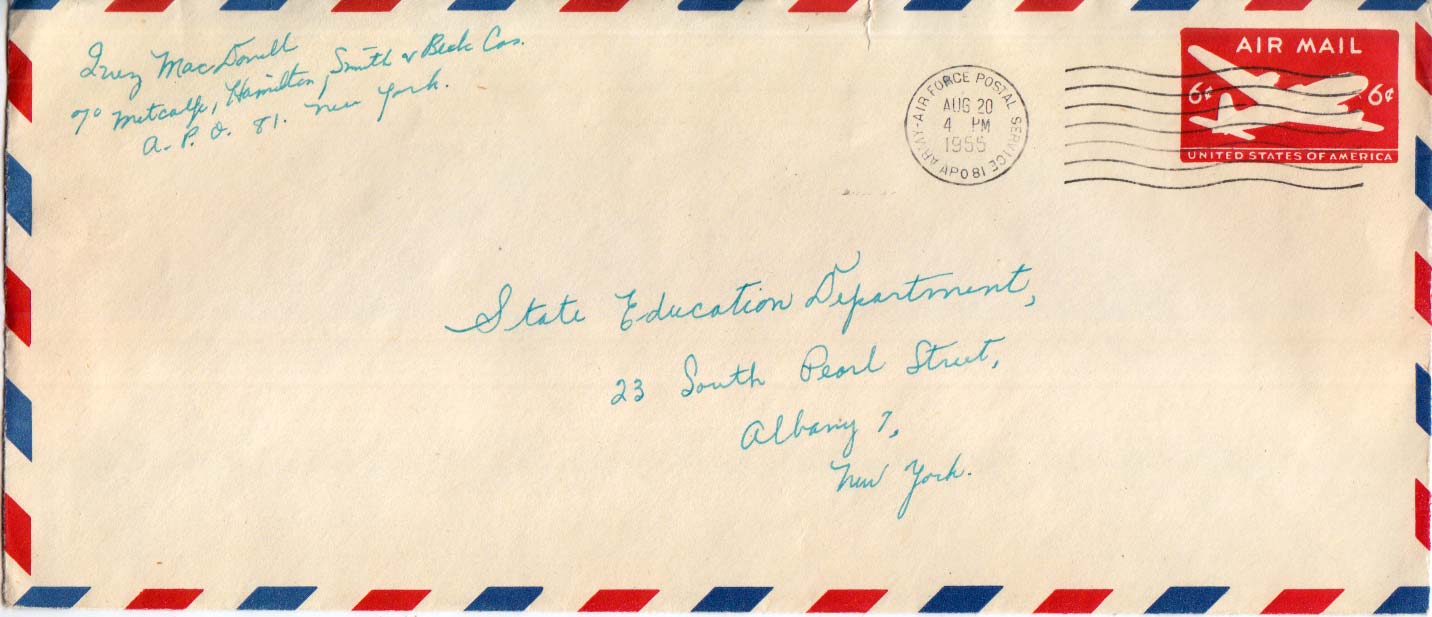 Inez MacDonell
℅ Metcalfe, Hamilton, Smith & Beck Cos.
A.P.O. 81. New York.
ARMY-AIR FORCE POSTAL SERVICE
AUG 20
4 PM
1955
APO 81
AIR MAIL
6¢ 6¢
UNITED STATES OF AMERICA
State Education Department,
23 South Pearl Street,
Albany 7,
New York.